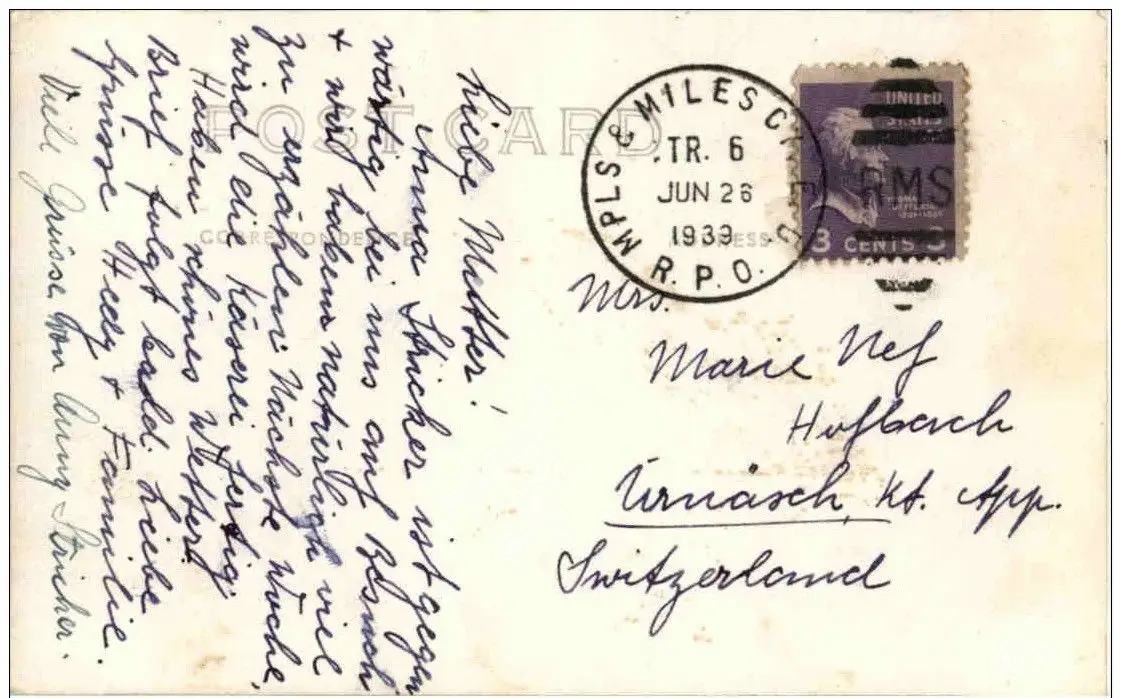 POST CARD
CORRESPONDENCE
ADDRESS
Liebe Mutter!
Anna Stricker ist gegen
wärtig bei uns auf Besuch
+ wir haben natürlich viel
zu erzählen. Nächste Woche,
wird die Käserei fertig.
Haben schönes Wetter!
Brief folgt bald. Liebe
Grüsse Hedy + Familie.
Viele Grüsse von Anny Stricker.
MPLS & MILES CITY E.D.
TR. 6
JUN 26
1939
R.P.O.
UNITED
STATES
RMS
THOMAS
JEFFERSON
3 CENTS 3
Mrs.
Marie Nef
Hofbach
Urnäsch, Kt. App.
Switzerland